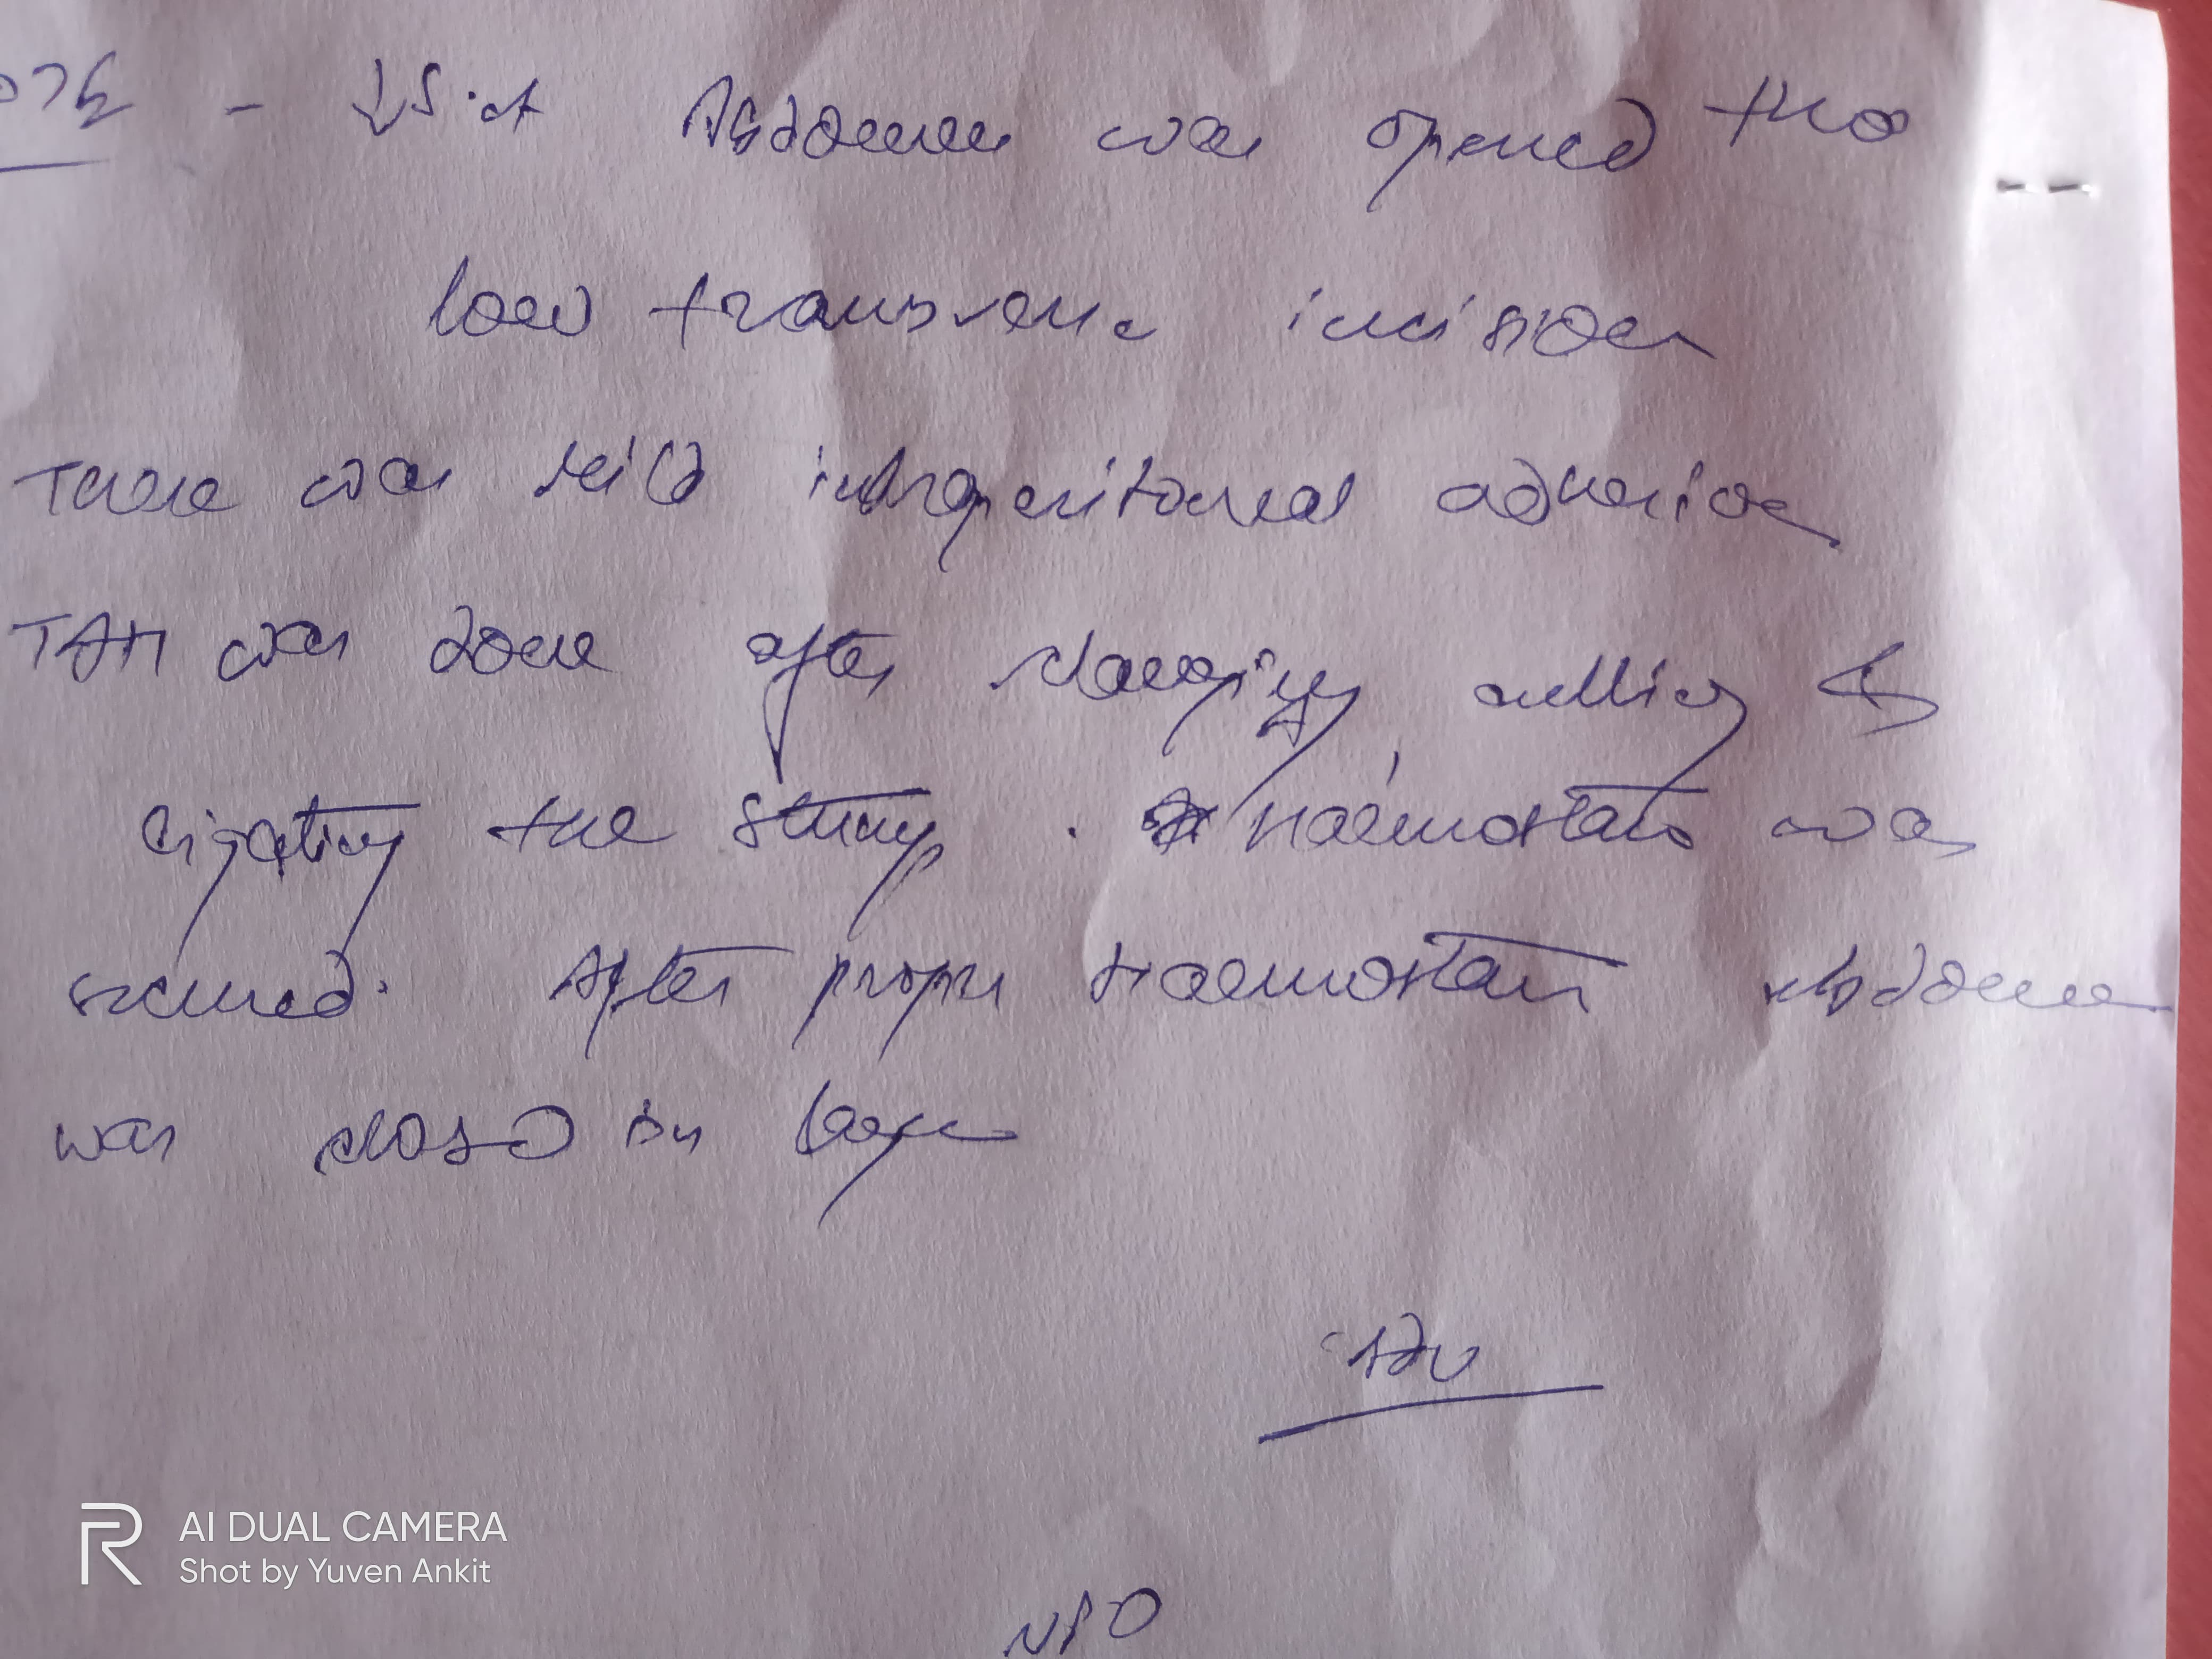 - ↓ S.A Abdomen was opened thro
low transverse incision
There was mild intraperitoneal adhesion
TAH was done after clamping, cutting &
ligating the stump. Haemostasis was
secured. After proper Haemostasis Abdomen
was closed in layer
Adv
NPO
AI DUAL CAMERA
Shot by Yuven Ankit